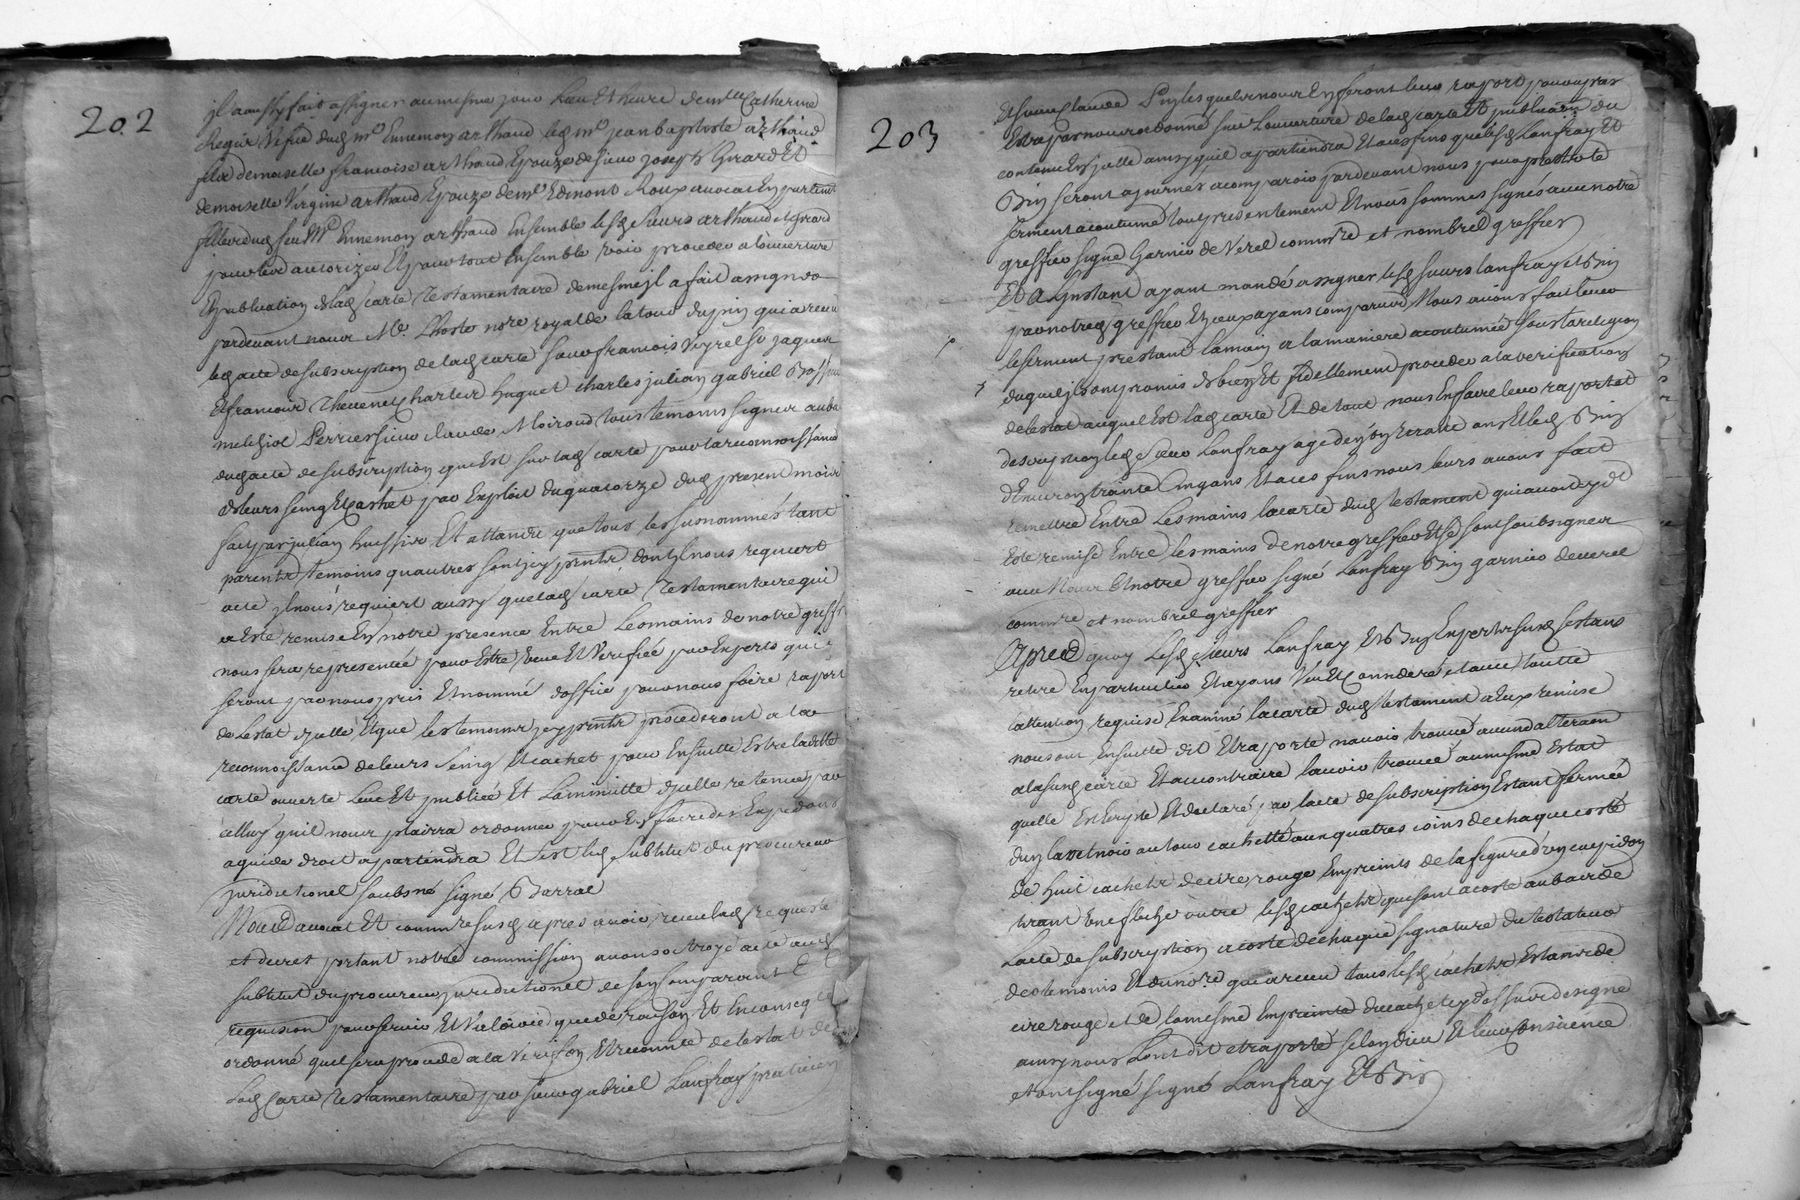 202
jl aausy fait assigner aumesme jour Lieu Et heure demlle Catherine
Regis vefue dud mre Ennemon arthaud led mre jean baptiste arthaud
filz demoiselle francoise arthaud Epouze de sieur joseph Girard Et
demoiselle Virginie arthaud Epouze de mre Edmont Roux auocat En parlemt
filles dud feu Mre Ennemon arthaud Ensemble lesd sieurs arthaud et girard
pour les autorizer Et pour tout Ensemble voir proceder a louuerture
Et publication de lad carte Testamentaire demesme jl a fait assigner
pardeuant nous Me Lhoste nore royal de la tour du pin qui a receu
led acte de subscription de lad carte sieur francois Veyrel sr jaques
Et francois Theuenet charles huguet charles julian gabriel
melchiol Perrier sieur claude Moiroud tous temoins signes au bas
dud acte de subscription quiest sur lad carte pour la reconnoissance
de leurs seing Et cachet par Exploit du quatorze dud present mois
fait par julian huissier Et attandu que tous les susnommés tant
parents temoins quautres sont jcy pnts dont jl nous requiert
acte jl nous requiert aussy que lad carte Testamentaire qui
a Esté remise En notre presence Entre les mains de notre greffr
nous sera representée pour Estre veue Et Verifiée par Experts qui
seront par nous pris Et nommé doffice pour nous faire raport
de Lestat djcelle, Et que les temoins jcy pnts procederont a la
reconnoissance de leurs seing Et cachet pour Ensuitte Estre laditte
carte ouuerte leue Et publiée Et La minutte djcelle retenue par
celluy quil nous plairra ordonner pour En faire des Expedons
a qui de droit apartiendra Et sest led subtitut du procureur
juridictionel soubsné signé Barral
Nous auocat Et commre susd apres auoir receu lad requeste
et decret portant notre commission auons octroyé acte aud
subtitut du procureur juridictionel de son comparant Et
requision pour seruir Et Valoir ce que de raison Et En conseqce
ordonné quil sera procedé a la verifion Et reconnce de lestat de
Lad Carte Testamentaire par sieur gabriel Lanfray praticien
203
Et sieur claude Bin lesquels nous En feront leur raport pour apres
Estre par nous ordonné sur Louuerture de lad carte Et publication du
contenu En jcelle ainsy quil apartiendra Et a ces fins que lesd Lanfray Et
Bin seront ajournés a comparoir pardeuant nous pour preter le
serment acoutumé tout presentement Et nous sommes signés auec notre
greffier signé Garnier de Verel commre et nombrel greffier
Et a Linstant ayant mandé assigner lesd sieurs lanfray et Bin
par notred greffier Et Iceux ayans comparus, Nous auons fait leuer
le serment prestant la main a la maniere acoutumée sous la religion
duquel jls ont promis de bien Et fidellement proceder a la verification
de lestat auquel Est lad carte Et de tout nous En faire leur raport et
description led sieur Lanfray age denuiron trante ans Et led Bin
dEnuiron trante Cinq ans Et a ces fins nous leurs auons fait
remettre Entre Les mains la carte dud testament qui auoit cy dt
Esté remise Entre les mains de notre greffier Et se sont soubsignes
auec Nous Et notre greffier signé Lanfray Bin garnier de verel
commre et nombrel greffier
Apres quoy Lesd sieurs Lanfray Et Bin Experts susd sestans
retiré En particulier Et ayans Veu Et Consideré et auec toutte
lattention requise Examiné la carte dud testament a Eux remise
nous ont Ensuitte dit Et raporté nauoir trouué aucune alteraon
a la susd carte Et au contraire lauoir trouuée au mesme Estat
quelle Enonyse Et declaré par lacte de subscription Estant fermée
dun lacet noir autour cachetté aux quatres coins de chaque costé
de huit cachets de cire rouge Empreints de la figure dun cupidon
tirant une fleche outre lesd cachets qui sont a costé au bas de
Lacte de subscription a costé de chaque signature du testateur
des temoins Et du nore qui a receu tous lesd cachets Estans de
cire rouge et de la mesme Empreinte du cachet cy dessus designé
ainsy nous Lont dit et raporté selon dieu Et leur Consience
et ont signé signé Lanfray Et Bin